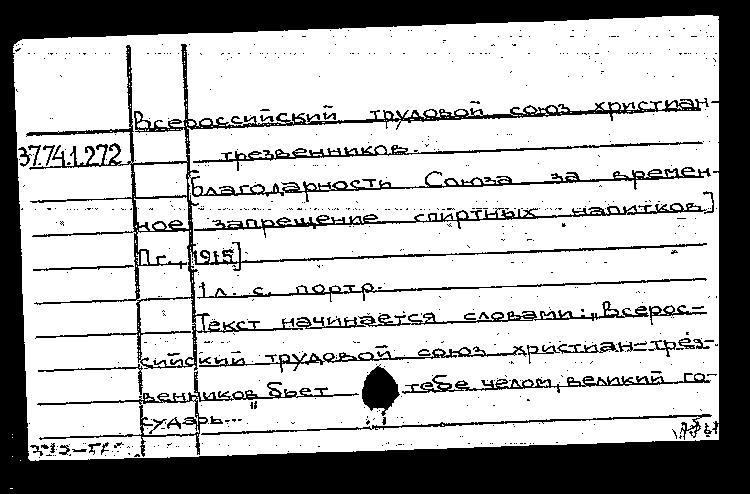 Всероссийский трудовой союз христиан-
37.74.1.272 трезвенников.
[Благодарности Союза за времен-
ное запрещение спиртных напитков]
Пг., [1915]
1 л. с. портр.
Текст начинается словами: „Всерос-
сийский трудовой союз христиан-трез-
венников" бьет тебе челом, великий го-
сударь...